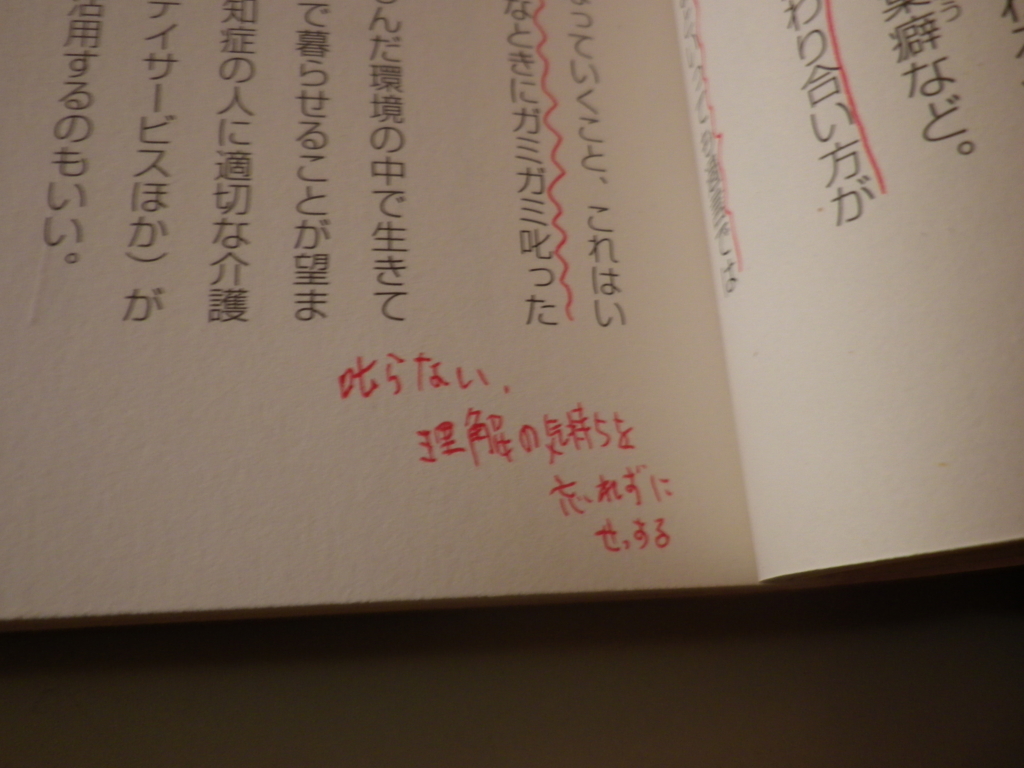 なっていくこと、これはい
なときにガミガミ叱った
んだ環境の中で生きて
で暮らせることが望ま
知症の人に適切な介護
デイサービスほか）が
活用するのもいい。
巣癖など。
わり合い方が
叱らない、
理解の気持ちを
忘れずに
せっする